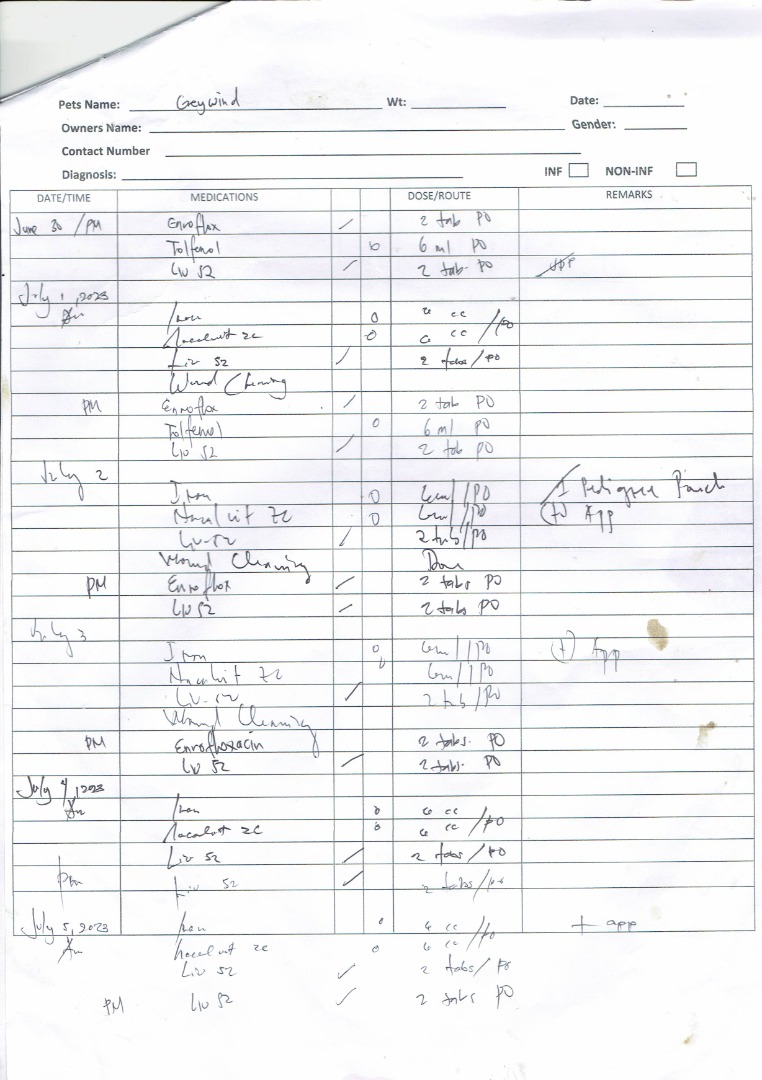 Pets Name: Greywind Wt: Date:
Owners Name: Gender:
Contact Number
Diagnosis: INF NON-INF
DATE/TIME MEDICATIONS DOSE/ROUTE REMARKS
June 30 / PM Enroflox / 2 tab PO
Tolfenol o 6 ml PO
LIV 52 / 2 tab PO
July 1, 2023
AM Iron o cc
Nacalvit zc o cc / PO
Liv 52 / 2 tabs / PO
Wound Cleaning
PM Enroflox / 2 tab PO
Tolfenol o 6 ml PO
LIV 52 / 2 tab PO
July 2
Iron o 6ml / PO I Pedigree Pouch
Nacalvit ZC o 6ml / PO (+) App
LIV-52 / 2 tab / PO
Wound Cleaning Done
PM Enroflox / 2 tabs PO
LIV 52 / 2 tabs PO
July 3
Iron o 6ml / PO (+) App
Nacalvit ZC o 6ml / PO
LIV-52 / 2 tab / PO
Wound Cleaning
PM Enrofloxacin 2 tabs. PO
LIV 52 / 2 tabs. PO
July 4, 2023
AM Iron o cc
Nacalvit zc o cc / PO
Liv 52 / 2 tabs / PO
PM Liv 52 / 2 tabs / PO
July 5, 2023 Iron o cc / PO + app
AM Nacalvit zc o cc
Liv 52 ✓ 2 tabs / PO
PM LIV 52 ✓ 2 tabs PO